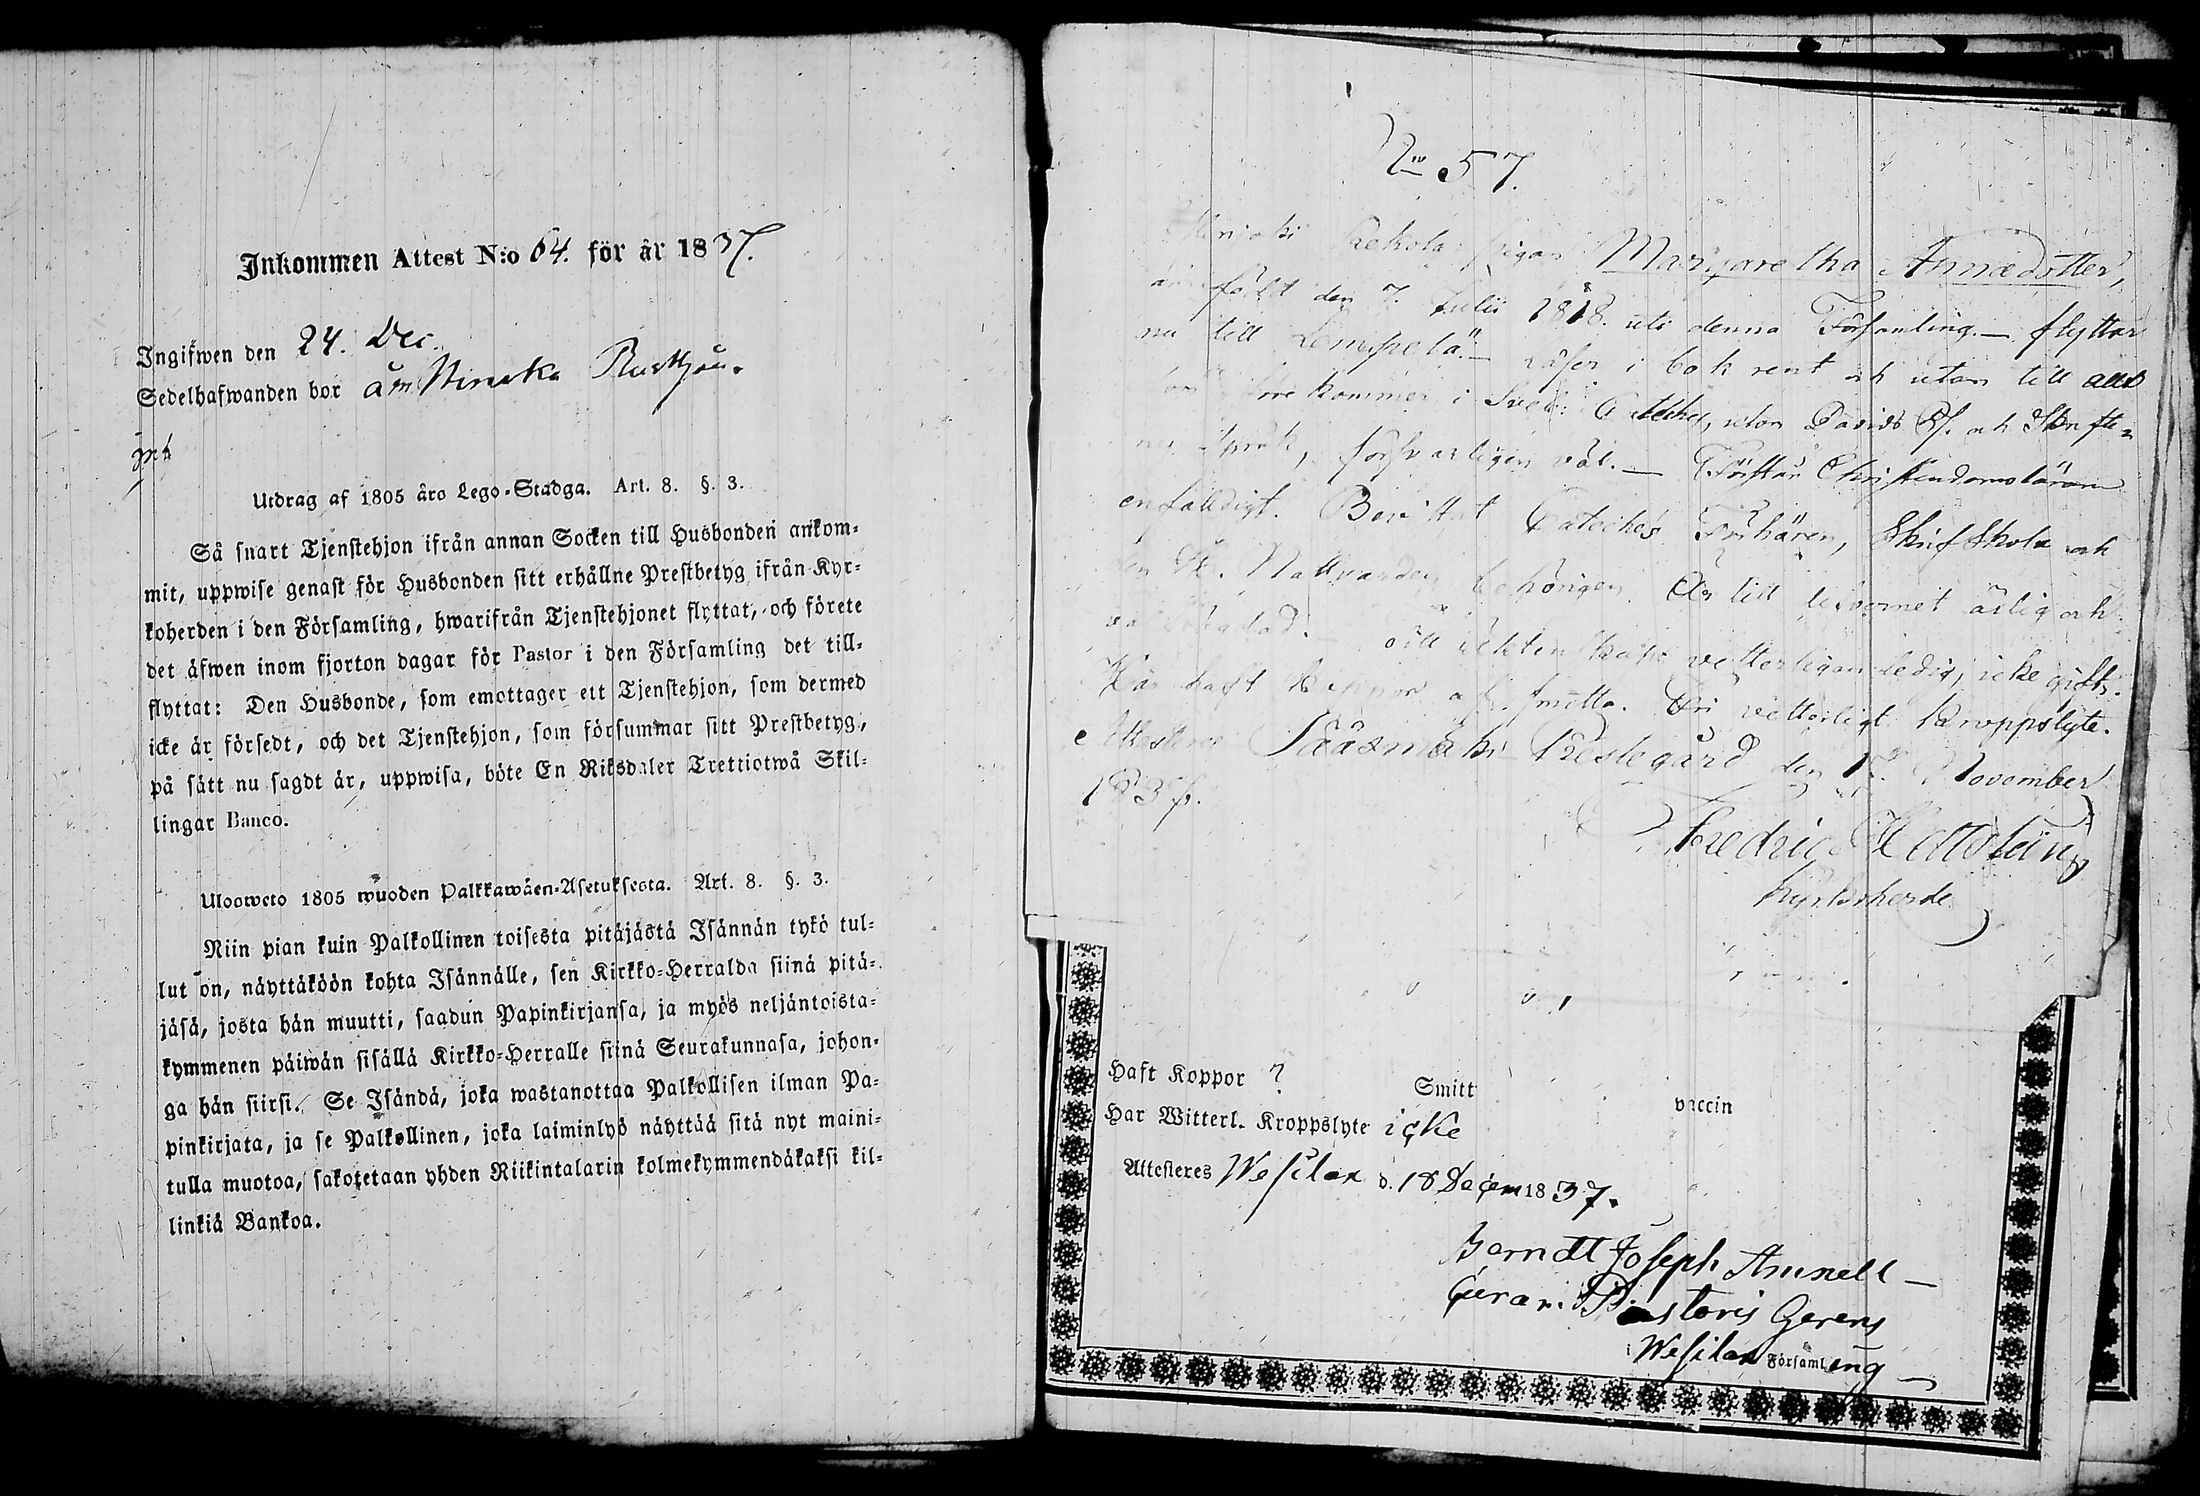 Inkommen Attest N:o 64. för år 1837.
Ingifwen den 24. Dec.
Sedelhafwanden bor å
Utdrag af 1805 åro Lego-Stadga. Art. 8. §. 3.
Så snart Tjenstehjon ifrån annan Socken till Husbonden ankom-
mit, uppwise genast för Husbonden sitt erhållne Prestbetyg ifrån Kyr-
koherden i den Församling, hwarifrån Tjenstehjonet flyttat, och förete
det äfwen inom fjorton dagar för Pastor i den Församling det till-
flyttat: Den Husbonde, som emottager ett Tjenstehjon, som dermed
icke är försedt, och det Tjenstehjon, som försummar sitt Prestbetyg,
på sätt nu sagdt är, uppwisa, böte En Riksdaler Trettiotwå Skil-
lingar Banco.
Uloosweto 1805 wuoden Palkkawäen-Asetuksesta. Art. 8. §. 3.
Niin pian kuin Palkollinen toisesta pitäjästä Isännän tykö tul-
lut on, näyttäköön kohta Isännälle, sen Kirkko-Herralda siinä pitä-
jäsä, josta hän muutti, saadun Papinkirjansa, ja myös neljäntoista-
kymmenen päiwän sisällä Kirkko-Herralle siinä Seurakunnasa, johon-
ga hän siirsi. Se Isändä, joka wastanottaa Palkollisen ilman Pa-
pinkirjata, ja se Palkollinen, joka laiminlyö näyttää sitä nyt maini-
tulla muotoa, sakotetaan yhden Riikintalarin kolmekymmendäkaksi kil-
linkiä Bankoa.
No 57.
Rekola pigan Margaretha Annædotter,
född den 7. Julii 1818. uti denna Församling. — flyttar
nu till Lempelä. — läser i bok rent och utan till allt
förekommer i Sved: Cateches, utom Davids Ps. och Skriftenes
språk, försvarligen väl. — Förstår Christendomsläran
enfalldigt. Bevistat Cateches Förhören, Skrif Skola och
den H. Nattvarden behörigen. Är till lefvernet ärlig och
till ächtenskap vetterligen ledig, icke gift.
Har haft Koppor af smitta. Fri vetterligt Kroppslyte.
Attesteras Sääxmäki Prestegård den November
1837.
Fredric
Kyrkoherde
Haft Koppor ? Smitt vaccin
Har Witterl. Kroppslyte icke
Attesteres Wesilax d. 18 Decem 1837.
Berndt Joseph Amnell —
Curam Pastoris Gerens
i Wesilax Församling —